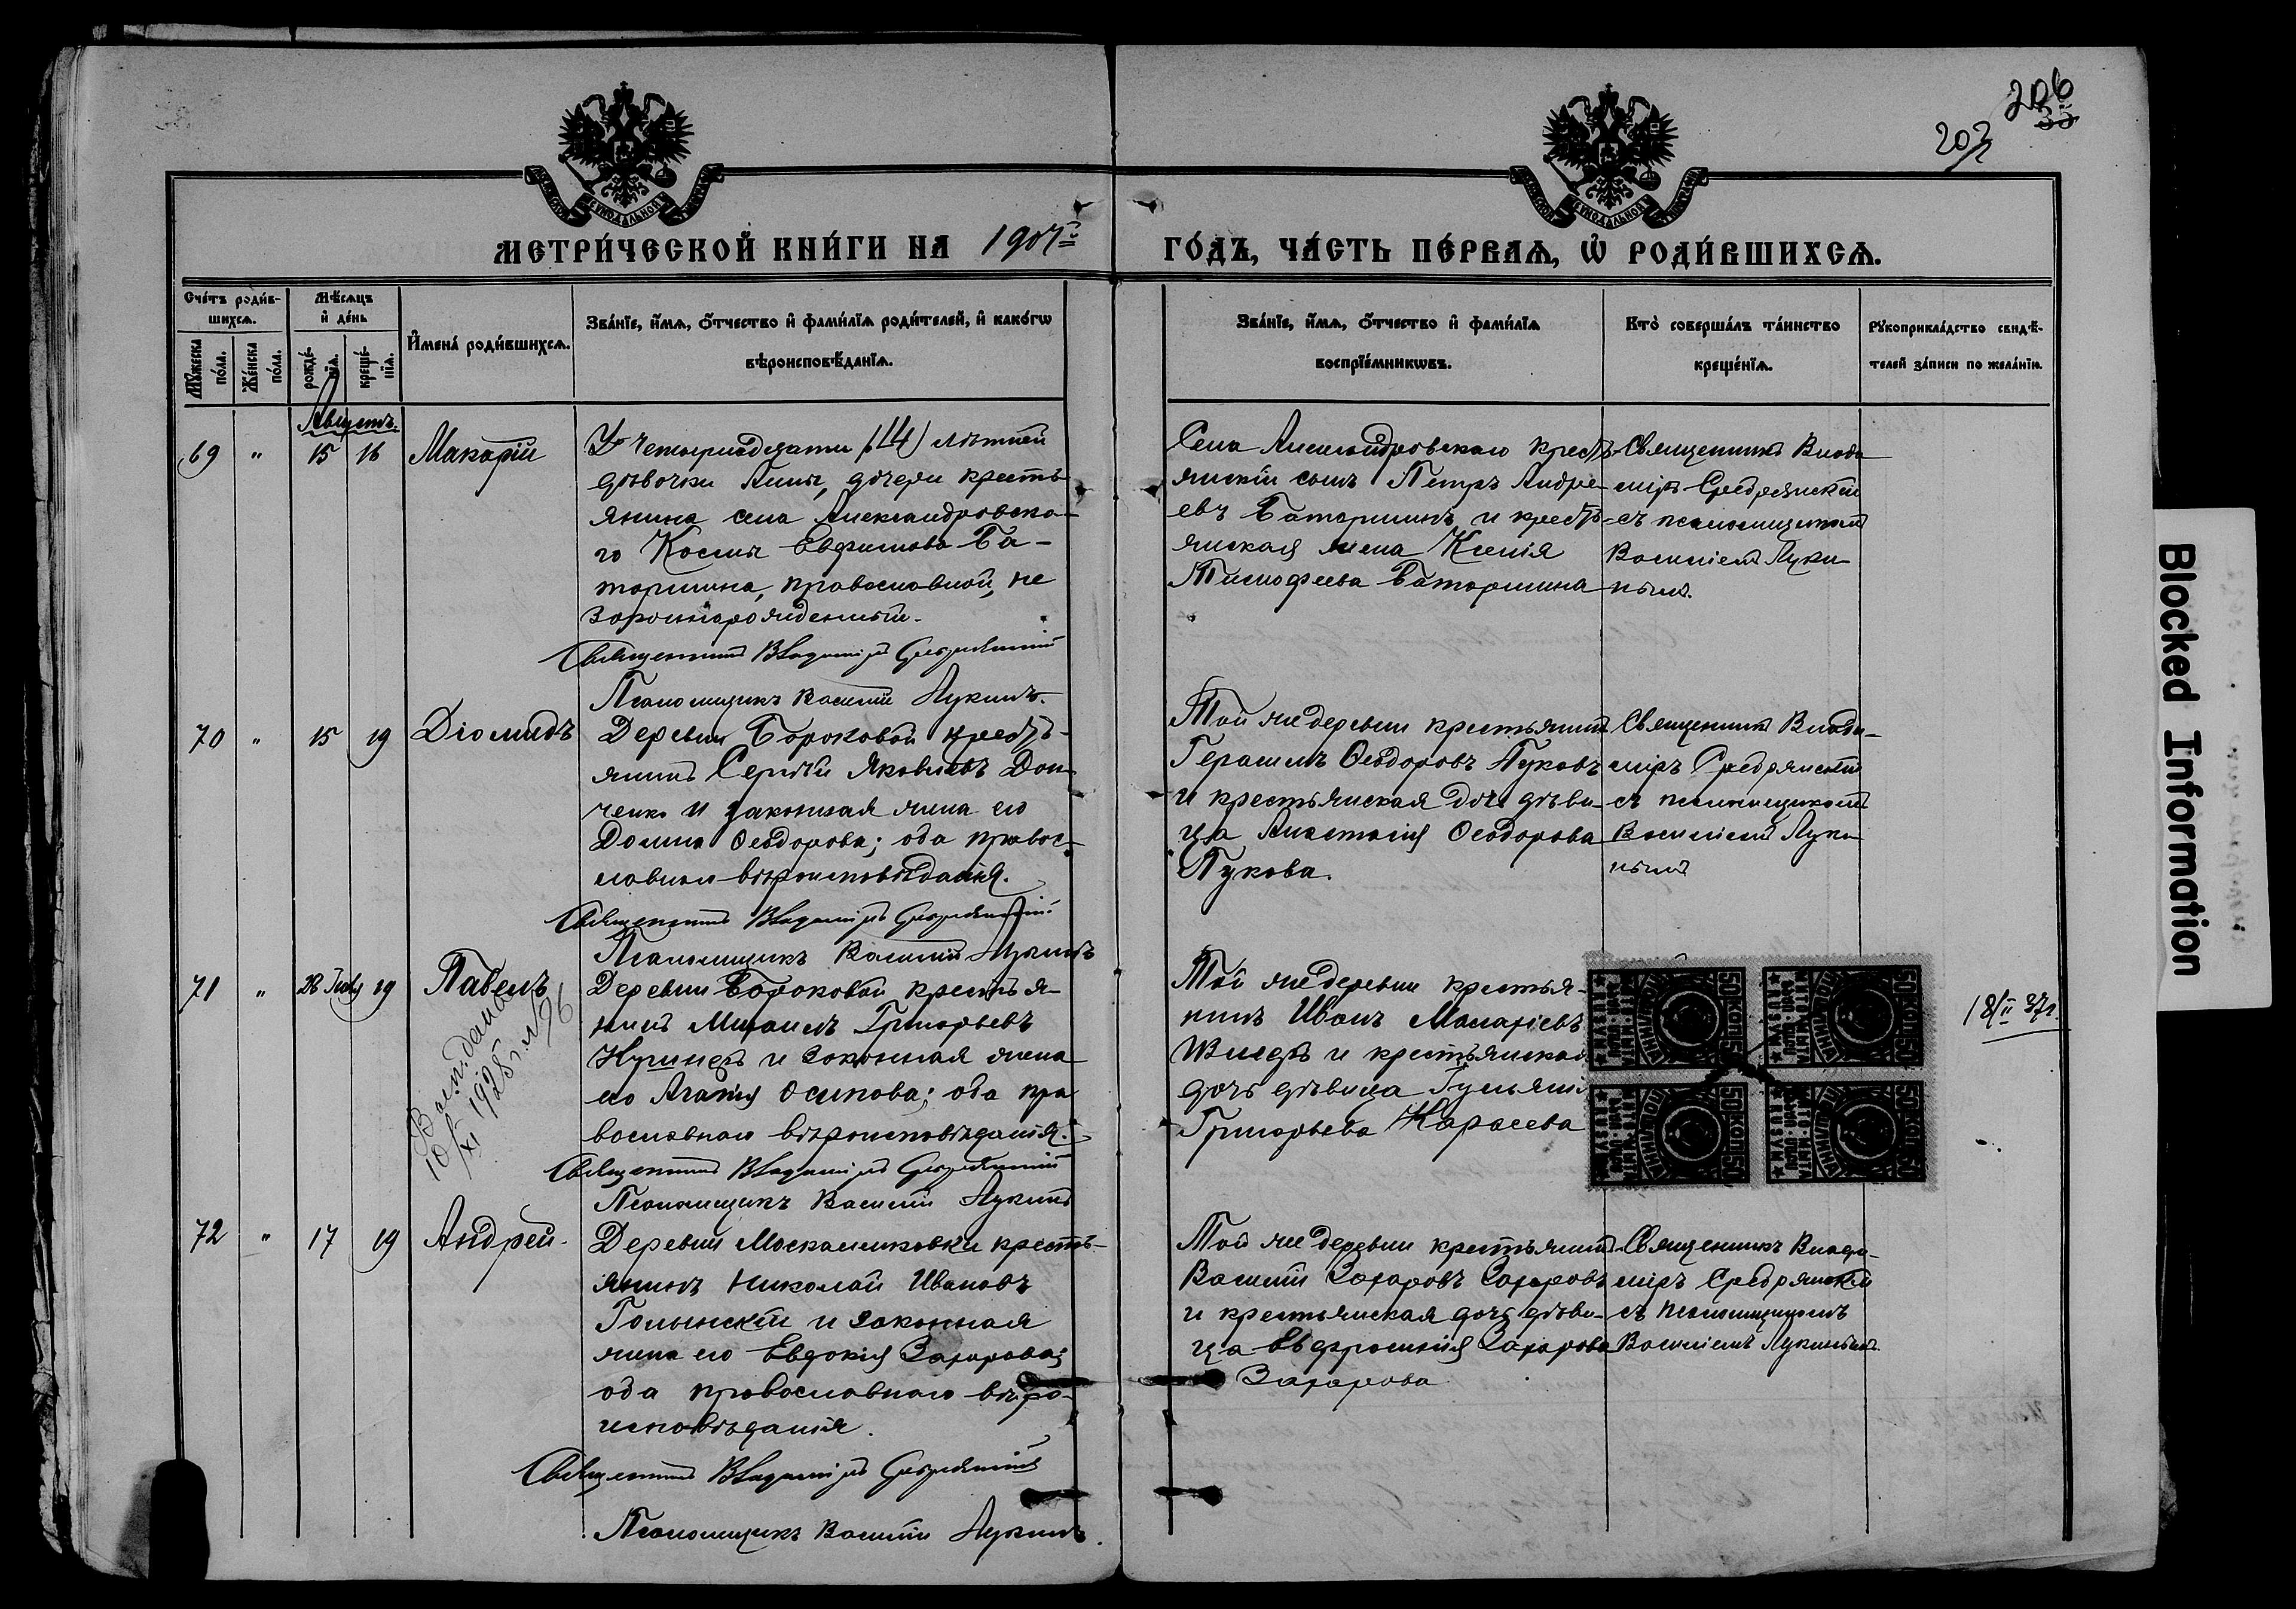 206
35
203
МЕТРИ́ЧЕСКОЙ КНИ́ГИ НА 1907й ГО́ДЪ, ЧА́СТЬ ПЕ́РВАѦ, Ѡ РОДИ́ВШИХСѦ.
Сче́тъ роди́в-
шихсѧ.
Мѣ́сѧцъ
и де́нь
Мꙋ́жеска
по́ла.
Же́нска
по́ла.
рожде́-
нїѧ.
креще́-
нїѧ.
Имена́ роди́вшихсѧ.
Зва́нїе, и́мѧ, ѻ́тчество и фами́лїѧ роди́телей, и како́гѡ
вѣроисповѣ́данїѧ.
Зва́нїе, и́мѧ, ѻ́тчество и фами́лїѧ
воспрїе́мникѡвъ.
Кто̀ соверша́лъ та́инство
креще́нїѧ.
Рꙋкоприкла́дство свидѣ́-
телей за́писи по жела́нїю.
Августъ.
69 " 15 16 Макарій
У четырнадцати (14) лѣтней
дѣвочки Анны, дочери кресть-
янина села Александровска-
го Космы Евфимова Ба-
торшина, православной, не
законнорожденный.
Священникъ Владиміръ Средрянскій
Псаломщикъ Василій Лукинъ.
Села Александровскаго кресть-
янскій сынъ Петръ Андре-
евъ Баторшинъ и кресть-
янская жена Ксенія
Тимофеева Баторшина
Священникъ Влади-
міръ Средрянскій
съ псаломщикомъ
Василіемъ Луки-
нымъ.
70 " 15 19 Діомидъ
Деревни Бороковой кресть-
янинъ Сергѣй Яковлевъ Дон-
ченко и законная жена его
Домна Ѳеодорова; оба правос-
лавнаго вѣроисповѣданія.
Священникъ Владиміръ Средрянскій
Псаломщикъ Василій Лукинъ
Той же деревни крестьянинъ
Герасимъ Ѳеодоровъ Пуковъ
и крестьянская дочь дѣви-
ца Анастасія Ѳеодорова
Пукова.
Священникъ Влади-
міръ Средрянскій
съ псаломщикомъ
Василіемъ Луки-
нымъ
71 " 28 Іюля 19 Павелъ
Вып. дано
10/XI 1928 г. № 96
Деревни Бороковой крестья-
нинъ Михаилъ Григорьевъ
и законная жена
его Агафія Осипова; оба пра-
вославнаго вѣроисповѣданія.
Священникъ Владиміръ Средрянскій
Псаломщикъ Василій Лукинъ
Той же деревни крестья-
нинъ Иванъ Макаріевъ
и крестьянская
дочь дѣвица
Григорьева Карасева
50 КОП 50
50 КОП 50
50 КОП 50
50 КОП 50
18/II 37г.
72 " 17 19 Андрей
Деревни Москаленковки кресть-
янинъ Николай Ивановъ
Голынскій и законная
жена его Евдокія Захарова;
оба православнаго вѣро-
исповѣданія.
Священникъ Владиміръ Средрянскій
Псаломщикъ Василій Лукинъ.
Той же деревни крестьянинъ
Василій Захаровъ Захаровъ
и крестьянская дочь дѣви-
ца Евфросинія Захарова
Захарова
Священникъ Влади-
міръ Средрянскій
съ псаломщикомъ
Василіемъ Лукинымъ
Blocked Information